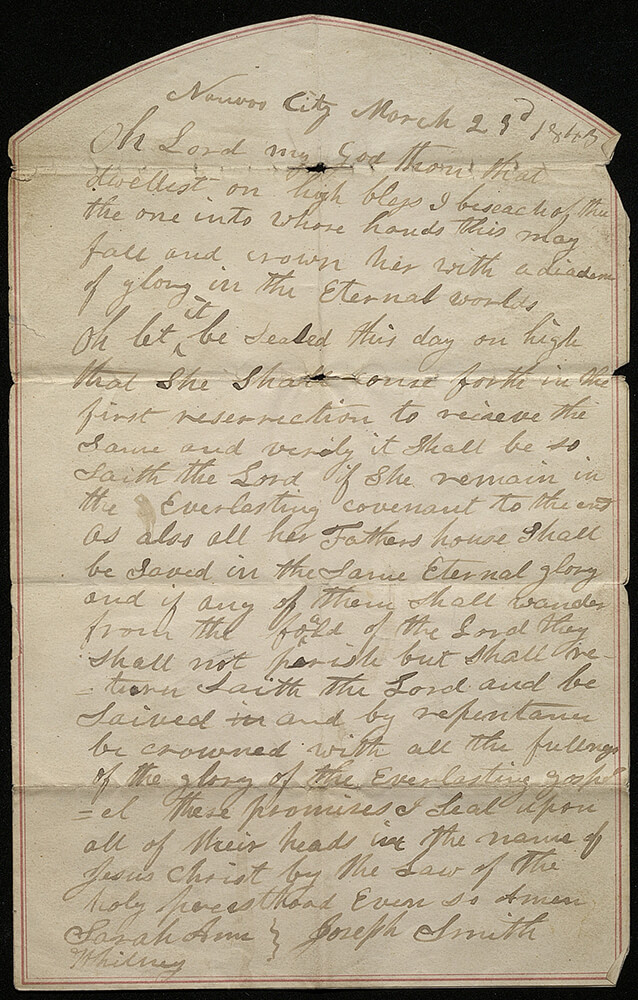 Nauvoo City March 23d 1843
Oh Lord my God thou that
dwellest on high bless I beseach of thee
the one into whose hands this may
fall and crown her with a diadem
of glory in the Eternal worlds
Oh let it be Sealed this day on high
that She Shall come forth in the
first reserrection to recieve the
Same and verily it Shall be so
Saith the Lord if She remain in
the Everlasting covenant to the end
as also all her Fathers house Shall
be Saved in the Same Eternal glory
and if any of them Shall wander
from the foald of the Lord they
Shall not perish but Shall re-
=turn Saith the Lord and be
Saived in and by repentance
be crowned with all the fullness
of the glory of the Everlasting gosp
=el these promises I Seal upon
all of their heads in the name of
Jesus Christ by the Law of the
holy preesthood Even so Amen
Sarah Ann } Joseph Smith
Whitney